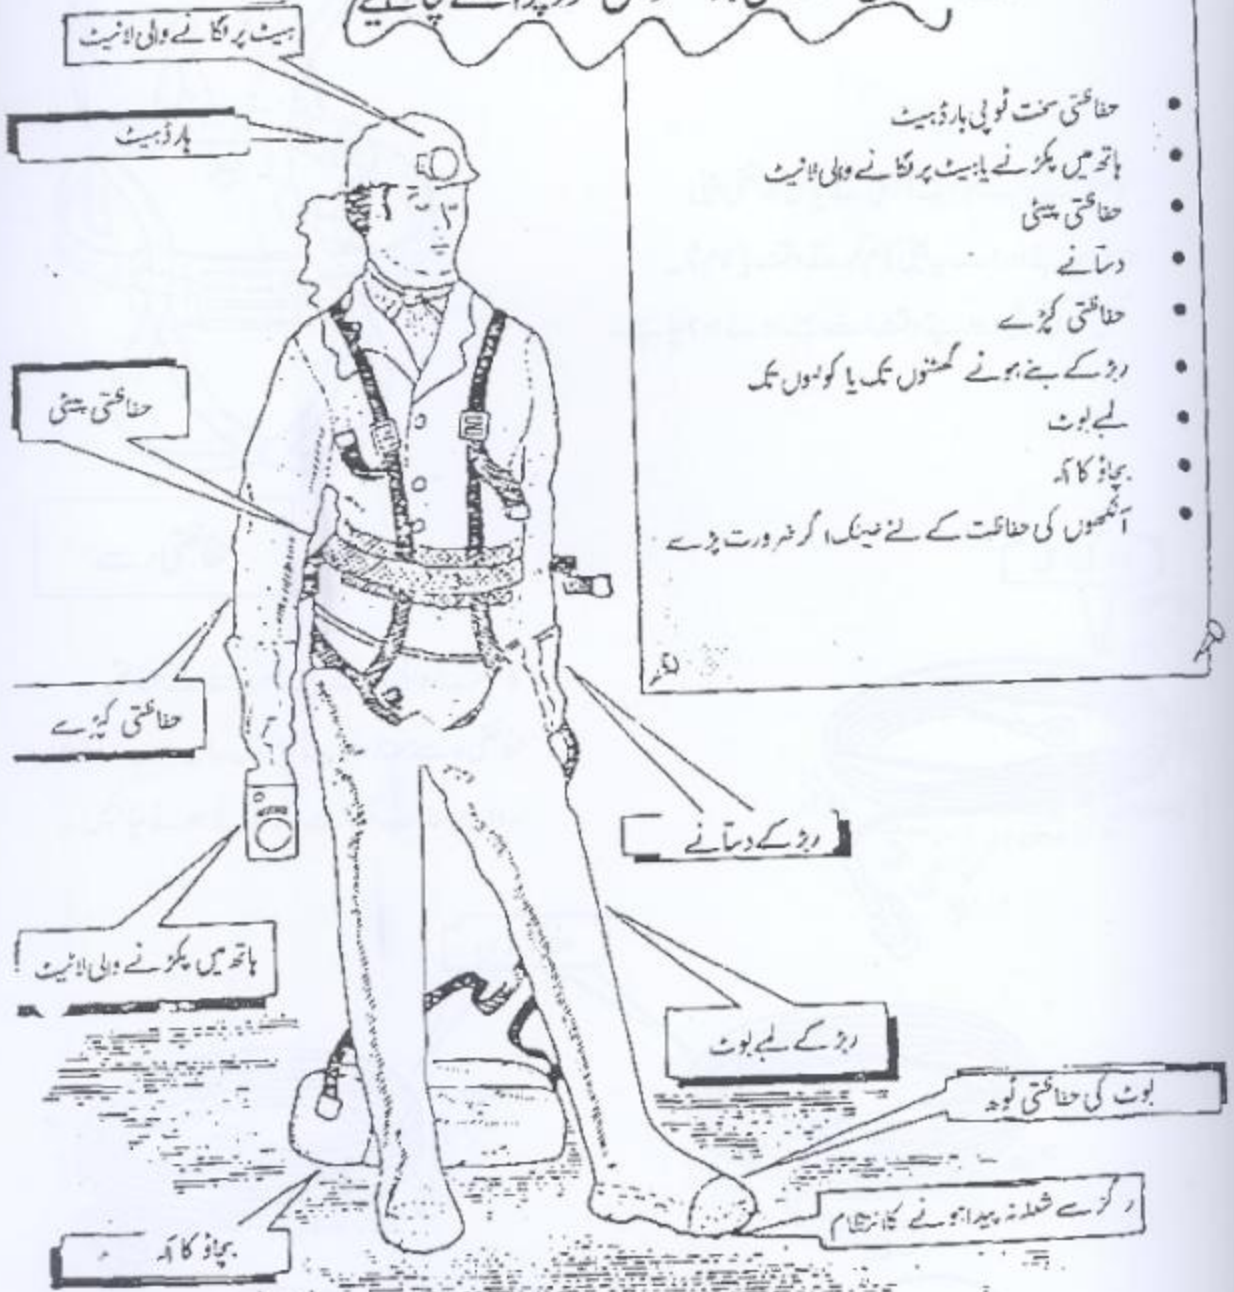 چاہیے
حفاظتی سخت ٹوپی ہارڈ ہیٹ
ہاتھ میں پکڑنے یا ہیٹ پر لگانے والی لائیٹ
حفاظتی پیٹی
دستانے
حفاظتی کپڑے
ربڑ کے بنے ہوئے گھٹنوں تک یا کولہوں تک
لمبے بوٹ
بچاؤ کا آلہ
آنکھوں کی حفاظت کے لئے عینک اگر ضرورت پڑے
ہیٹ پر لگانے والی لائیٹ
ہارڈ ہیٹ
حفاظتی پیٹی
حفاظتی کپڑے
ربڑ کے دستانے
ہاتھ میں پکڑنے والی لائیٹ
ربڑ کے لمبے بوٹ
بوٹ کی حفاظتی ٹوھ
رگڑ سے شعلہ نہ پیدا ہونے کا انتظام
بچاؤ کا آلہ